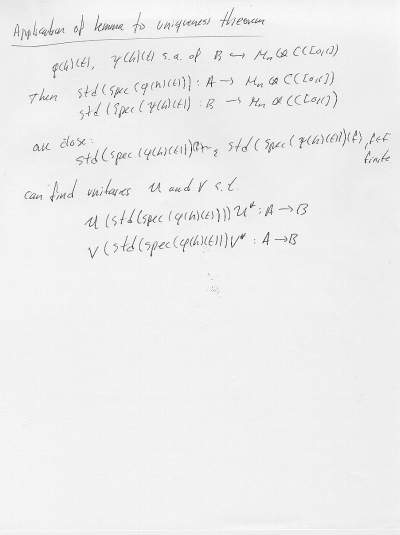 Application of lemma to uniqueness theorem
φ(h)(t), ψ(h)(t) s.a. of B ↔ Mn ⊗ C([0,1])
Then std(spec(φ(h)(t))) : A → Mn ⊗ C([0,1])
std(spec(ψ(h)(t)) : B → Mn ⊗ C([0,1])
are close:
std(spec(φ(h)(t))(f) ε std(spec(ψ(h)(t))(f), f∈F
finite
can find unitaries U and V s.t.
U(std(spec(φ(h)(t)))U* : A → B
V(std(spec(φ(h)(t))V* : A → B